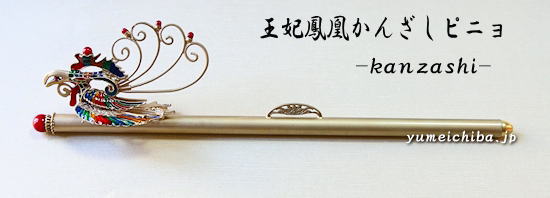 王妃鳳凰かんざしピニョ
-kanzashi-
yumeichiba.jp